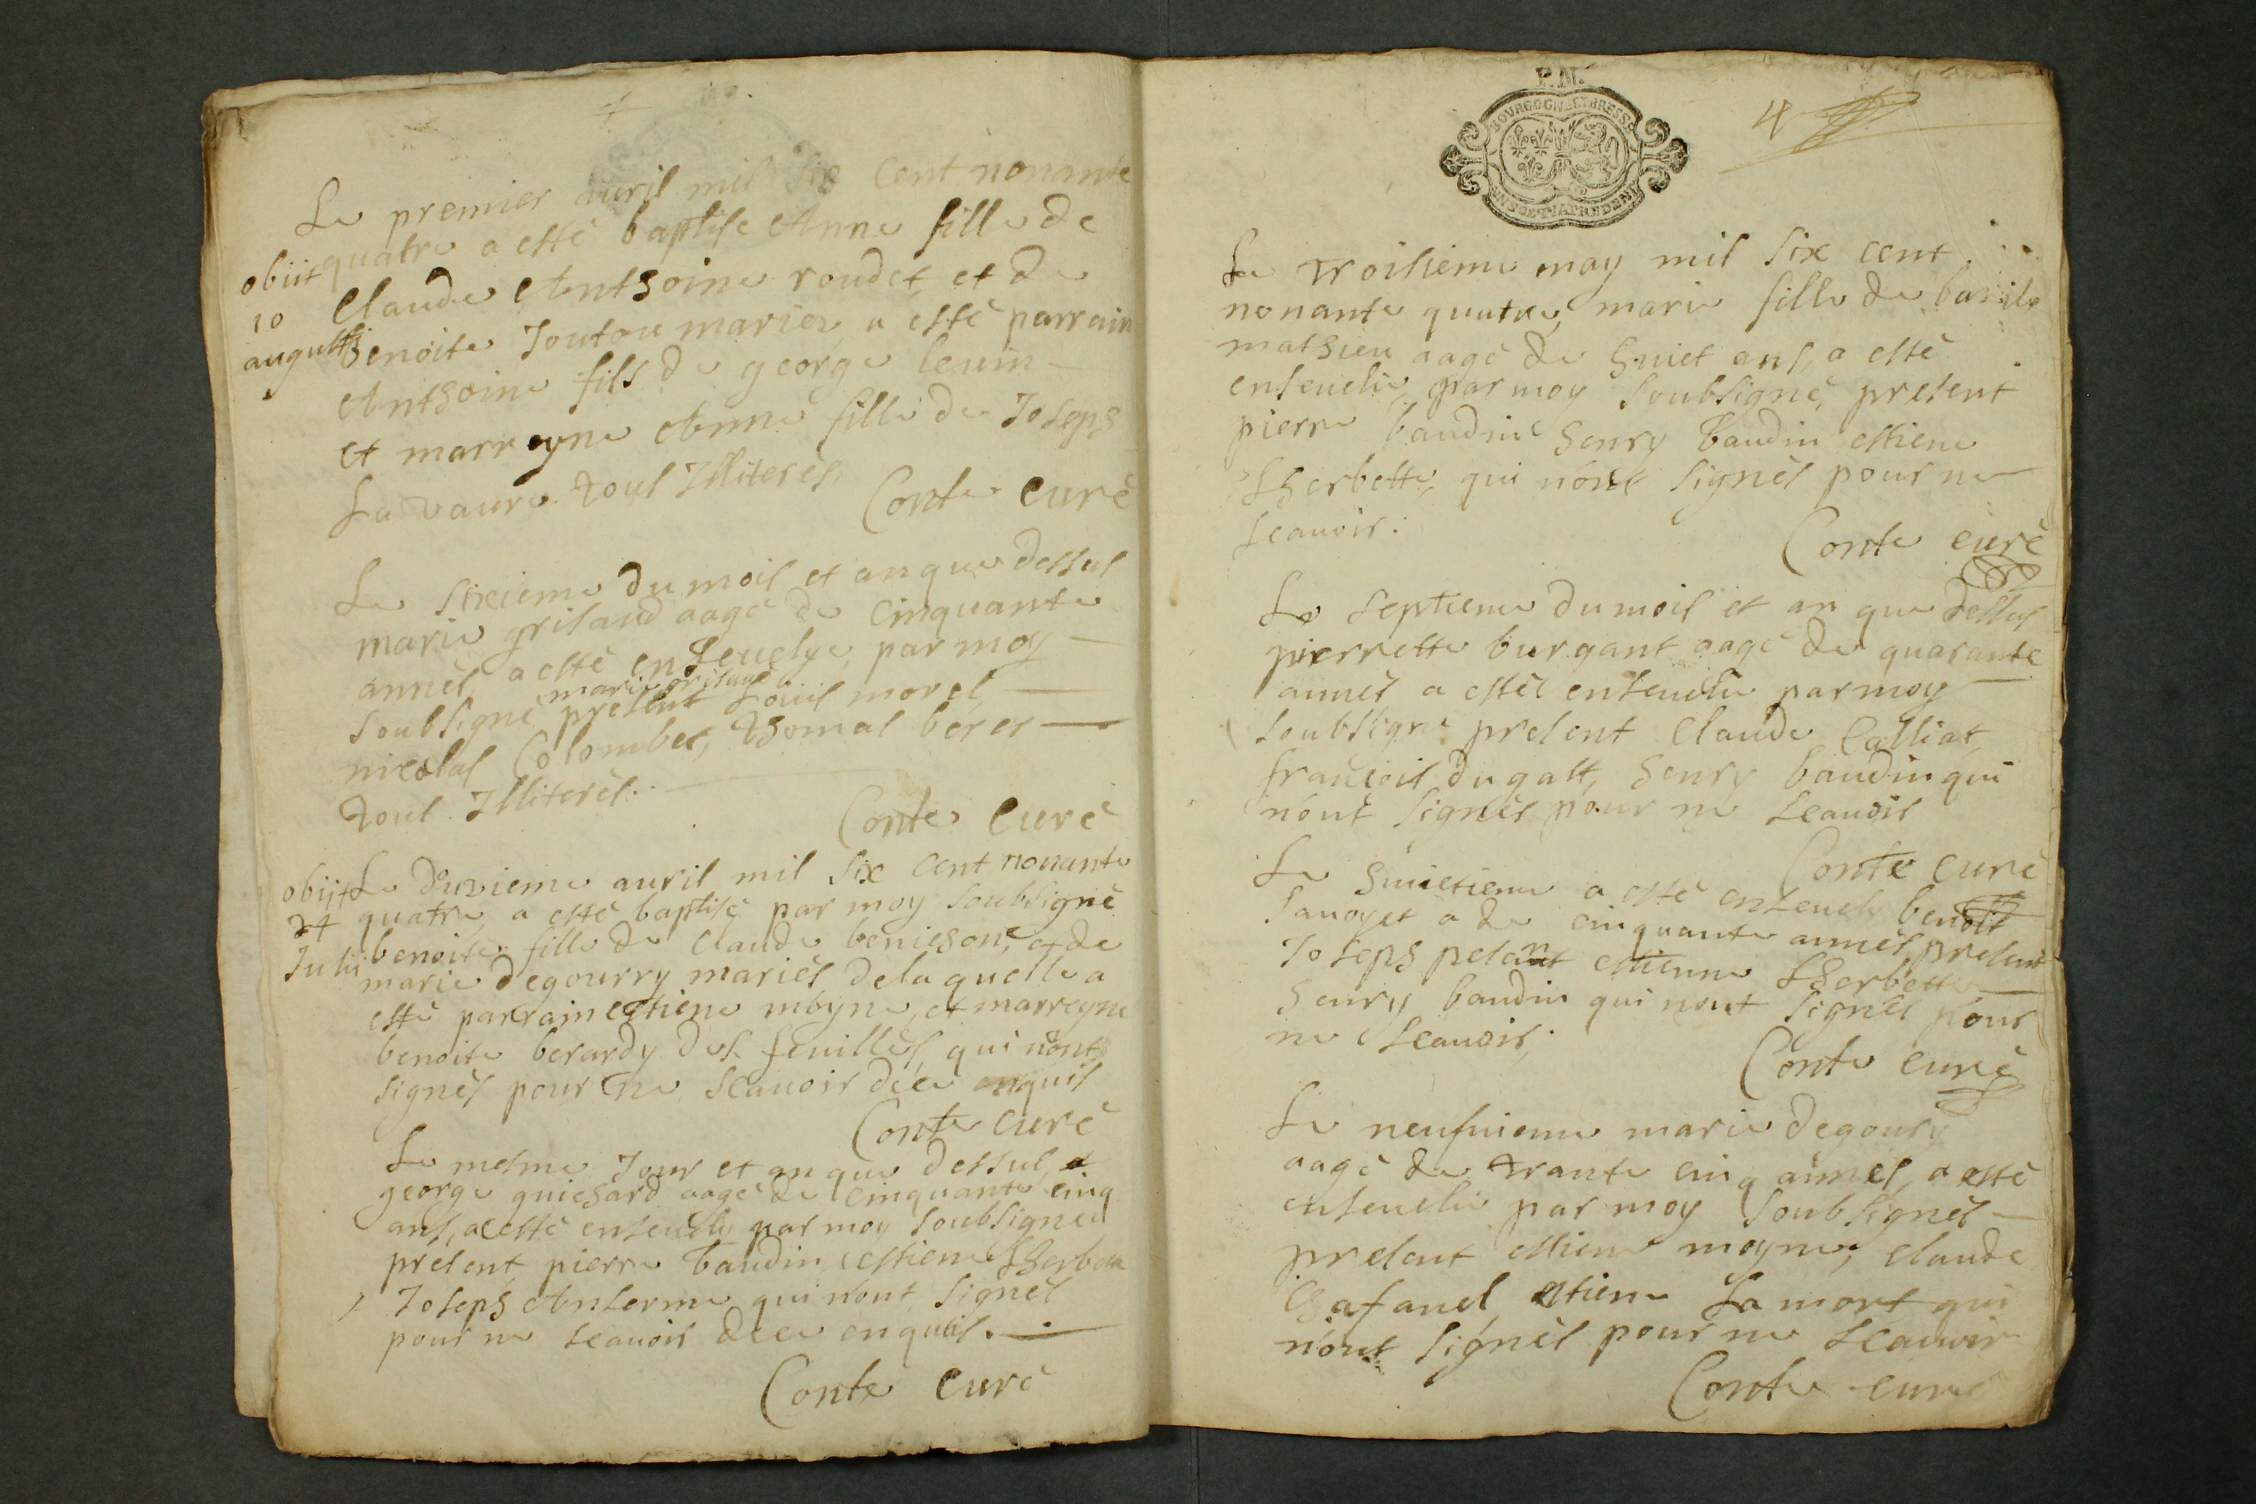 Le premier auril mil six cent nonante
obiit quatre a esté baptise Anne fille de
10 Claude Anthoine roudet et de
augusti benoite Joutou mariez, a esté parrain
Anthoine fils de george leuin
et marreyne Anne fille de Joseph
La vaure tous Illiteres.
Conte curé
Le sixieme du mois et an que dessus
marie grisaud aagé de cinquante
annés a esté enseuelye par moy
marie grisaud
soubsigné, present Louis morel,
nicolas Colombet, Thomas beres
tous Illiterés.
Conte Curé
obiit Le duzieme auril mil six cent nonante
24 quatre, a esté baptisé par moy soubsigné
Julii benoite fille de Claude benieson, et de
marie degourry mariés de laquelle a
esté parrain estiene moyne, et marreyne
benoite berardy des feuilles, qui nont
signés pour ne scauoir dece enquis
Conte curé
Le mesme Jour et an que dessus,
george guichard aagé de cinquante cinq
ans, a esté enseuely par moy soubsigné
present pierre baudin, estiene Lherbette
Joseph Anserme qui nont signés
pour ne scauoir dece enquis.
Conte curé
E.N.
BOURGOGNE ET BRESSE
4
Le troisieme may mil six cent
nonante quatre, marie fille de basile
mathieu aagé de huiet ans, a esté
enseuelie, par moy soubsigné, present
pierre baudin henry baudin estiene
Lherbette, qui nont signés pour ne
scauoir.
Conte curé
Le septieme du mois et an que dessus
pierrette burgant aagé de quarante
annés a estée enseuelie par moy
soubsigné present Claude Calliat,
françois dugast, henry baudin qui
nont signés pour ne scauoir
Conte curé
Le huietieme a esté enseueli benoit
sauoyet a de cinquante annés, present
Joseph pesant estienne Lherbette
henry baudin qui nont signés pour
ne scauoir,
Conte curé
Le neufuieme marie degoury
aagé de trante cinq annés, a esté
enseuelie par moy soubsignés
present estiene moyne, Claude
Chafanel, estiene La mort qui
n'ont signés pour ne scauoir
Conte curé